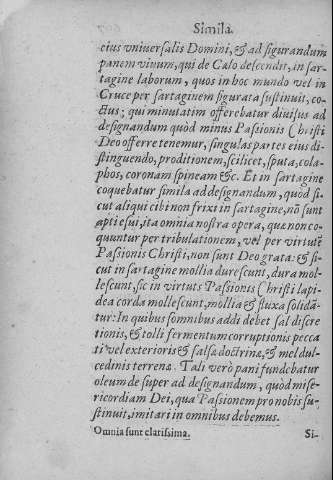 Simila.
eius vniuersalis Domini, & ad figurandum
panem viuum, qui de Cælo descendit, in sar-
tagine laborum, quos in hoc mundo vel in
Cruce per sartaginem figurata sustinuit, co-
ctus; qui minutatim offerebatur diuisus ad
designandum quòd minus Passionis Christi
Deo offerre tenemur, singulas partes eius di-
stinguendo, proditionem, scilicet, sputa, cola-
phos, coronam spineam &c. Et in sartagine
coquebatur simila ad designandum, quod si-
cut aliqui cibi non frixi in sartagine, nõ sunt
apti esui, ita omnia nostra opera, quæ non co-
quuntur per tribulationem, vel per virtutẽ
Passionis Christi, non sunt Deo grata: & si-
cut in sartagine mollia durescunt, dura mol-
lescunt, sic in virtuts Passionis Christi lapi-
dea corda mollescunt, mollia & fluxa solidã-
tur: In quibus somnibus addi debet sal discre
tionis, & tolli fermentum corruptionis pecca
ti vel exterioris & falsæ doctrinæ, & mel dul-
cedinis terrenæ. Tali verò pani fundebatur
oleum de super ad designandum, quòd mise-
ricordiam Dei, qua Passionem pro nobis su-
stinuit, imitari in omnibus debemus.
Omnia sunt clarissima. Si-